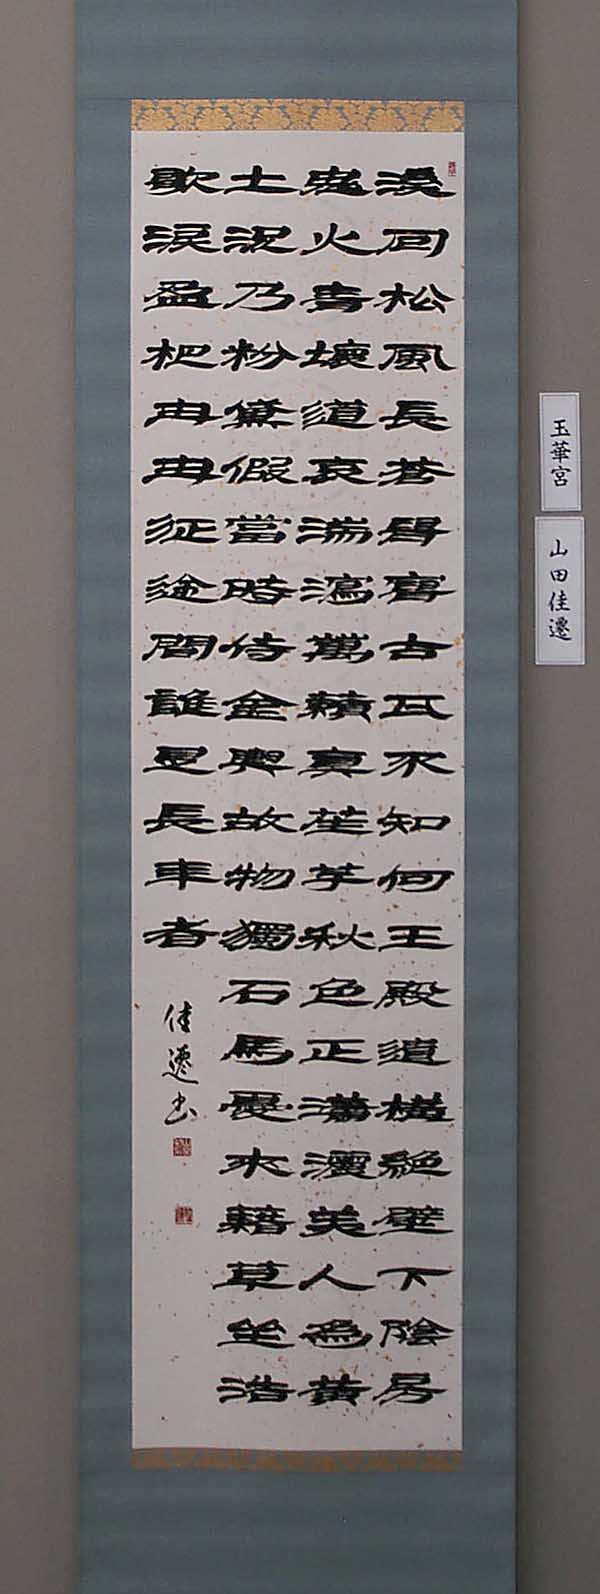 溪回松風長蒼鼠竄古瓦不知何王殿遺構絶壁下陰房
鬼火青壞道哀湍瀉萬籟真笙竽秋色正瀟灑美人為黃
土況乃粉黛假當時侍金輿故物獨石馬憂來藉草坐浩
歌淚盈把冉冉征途間誰是長年者
佳遷書
玉華宮
山田佳遷